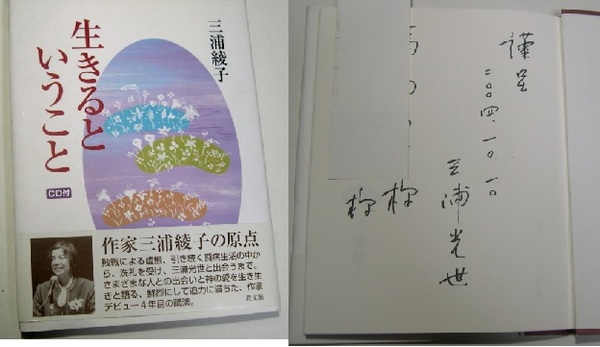 三浦綾子
生きると
いうこと
CD付
作家三浦綾子の原点
敗戦による虚無、引き続く闘病生活の中か
ら、洗礼を受け、三浦光世と出会うまで。
さまざまな人との出会いと神の愛を生き生
きと語る、鮮烈にして迫力に満ちた、作家
デビュー4年目の講演。
教文館
謹呈
二〇〇四、一〇、一〇
三浦光世
様
様